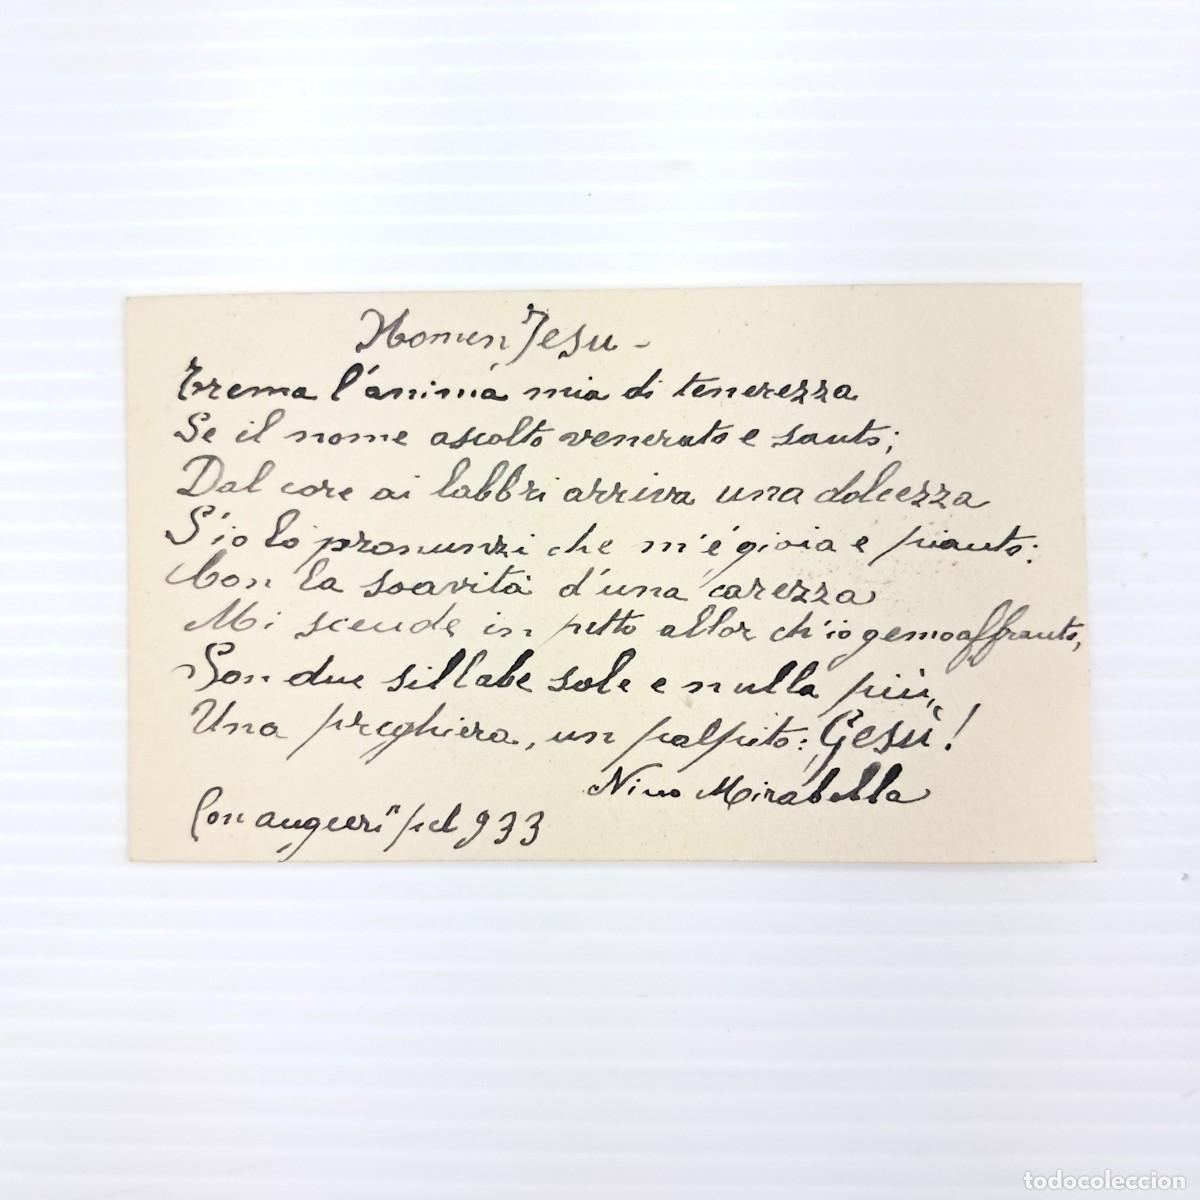 Nomen Jesu -
Trema l'anima mia di tenerezza
Se il nome ascolto venerato e santo;
Dal core ai labbri arriva una dolcezza
S'io lo pronunzi che m'é gioia e pianto:
Con la soavità d'una carezza
Mi scende in petto allor ch'io gemo affranto,
Son due sillabe sole e nulla più,
Una preghiera, un palpito: Gesù!
Nino Mirabella
Con auguri pel 933
todocoleccion